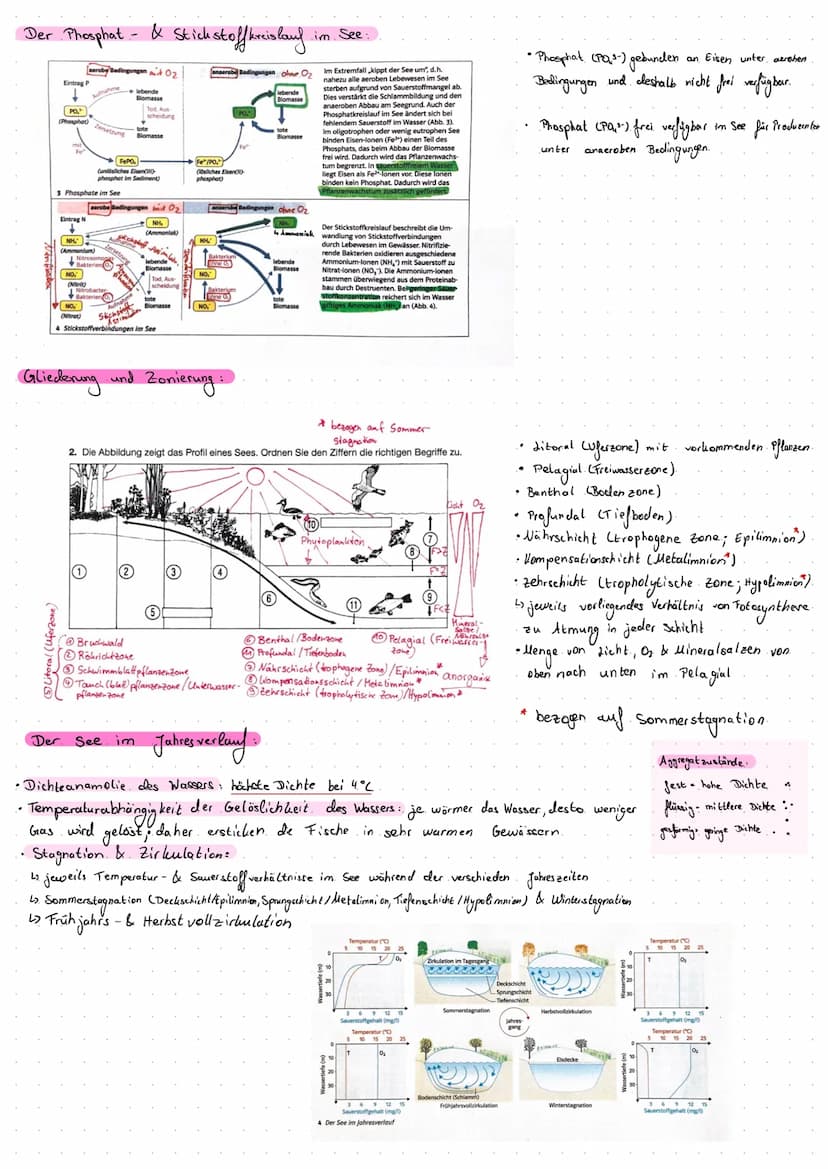 Der Phosphat- & Stickstoffkreislauf im See:
aerobe Bedingungen mit O2
anaerobe Bedingungen ohne O2
Eintrag P
Aufnahme
lebende Biomasse
PO₄³⁻
(Phosphat)
Tod, Ausscheidung
Zersetzung
tote Biomasse
mit Fe³⁺
FePO₄
(unlösliches Eisen(III)-phosphat im Sediment)
lebende Biomasse
PO₄³⁻
tote Biomasse
Fe²⁺
Fe²⁺/PO₄³⁻
(lösliches Eisen(II)-phosphat)
3 Phosphate im See
Im Extremfall „kippt der See um", d. h.
nahezu alle aeroben Lebewesen im See
sterben aufgrund von Sauerstoffmangel ab.
Dies verstärkt die Schlammbildung und den
anaeroben Abbau am Seegrund. Auch der
Phosphatkreislauf im See ändert sich bei
fehlendem Sauerstoff im Wasser (Abb. 3).
Im oligotrophen oder wenig eutrophen See
binden Eisen-Ionen (Fe³⁺) einen Teil des
Phosphats, das beim Abbau der Biomasse
frei wird. Dadurch wird das Pflanzenwachs-
tum begrenzt. In sauerstofffreiem Wasser
liegt Eisen als Fe²⁺-Ionen vor. Diese Ionen
binden kein Phosphat. Dadurch wird das
Pflanzenwachstum zusätzlich gefördert.
• Phosphat (PO₄³-) gebunden an Eisen unter aeroben
Bedingungen und deshalb nicht frei verfügbar.
• Phosphat (PO₄³-) frei verfügbar im See für Produzenten
unter anaeroben Bedingungen.
aerobe Bedingungen mit O2
anaerobe Bedingungen ohne O2
Eintrag N
NH₃
(Ammoniak)
NH₄⁺
(Ammonium)
Nitrosomonas Bakterien O₂
NO₂⁻
(Nitrit)
Nitrobacter Bakterien O₂
NO₃⁻
(Nitrat)
Aufnahme
Zersetzung
lebende Biomasse
Tod, Ausscheidung
tote Biomasse
NH₃
↳ Ammoniak
NH₄⁺
Bakterium ohne O₂
NO₂⁻
Bakterium ohne O₂
NO₃⁻
lebende Biomasse
tote Biomasse
4 Stickstoffverbindungen im See
Der Stickstoffkreislauf beschreibt die Um-
wandlung von Stickstoffverbindungen
durch Lebewesen im Gewässer. Nitrifizie-
rende Bakterien oxidieren ausgeschiedene
Ammonium-Ionen (NH₄⁺) mit Sauerstoff zu
Nitrat-Ionen (NO₃⁻). Die Ammonium-Ionen
stammen überwiegend aus dem Proteinab-
bau durch Destruenten. Bei geringer Sauer-
stoffkonzentration reichert sich im Wasser
giftiges Ammoniak (NH₃) an (Abb. 4).
Gliederung und Zonierung:
* bezogen auf Sommer-
stagnation
2. Die Abbildung zeigt das Profil eines Sees. Ordnen Sie den Ziffern die richtigen Begriffe zu.
Licht O2
Phytoplankton
1
2
3
4
5
6
7
8
9
10
11
F>Z
F=Z
F<Z
Mineral-
salze/
anorganis
⑤ Litoral (Uferzone)
① Bruchwald
② Röhrichtzone
③ Schwimmblattpflanzenzone
④ Tauch(blatt)pflanzenzone/Unterwasser-
pflanzenzone
⑥ Benthal/Bodenzone
⑪ Profundal/Tiefenboden
⑦ Nährschicht (trophogene Zone)/Epilimnion*
⑧ Kompensationsschicht/Metalimnion*
⑨ Zehrschicht (tropholytische Zone)/Hypolimnion*
⑩ Pelagial (Freiwasser-
zone)
• Litoral (Uferzone) mit vorkommenden Pflanzen
• Pelagial (Freiwasserzone)
• Benthal (Bodenzone)
• Profundal (Tiefboden)
• Nährschicht (trophogene Zone; Epilimnion*)
• Kompensationschicht (Metalimnion*)
• Zehrschicht (tropholytische Zone; Hypolimnion*)
↳ jeweils vorliegendes Verhältnis von Fotosynthese
zu Atmung in jeder Schicht
• Menge von Licht, O2 & Mineralsalzen von
oben nach unten im Pelagial
* bezogen auf Sommerstagnation
Der See im Jahresverlauf:
Aggregatzustände:
fest - hohe Dichte
flüssig - mittlere Dichte
gasförmig - geringe Dichte
• Dichteanamolie des Wassers: höchste Dichte bei 4°C
• Temperaturabhängigkeit der Gelöslichkeit des Wassers: je wärmer das Wasser, desto weniger
Gas wird gelöst; daher ersticken die Fische in sehr warmen Gewässern.
• Stagnation & Zirkulation:
↳ jeweils Temperatur- & Sauerstoffverhältnisse im See während der verschieden Jahreszeiten
↳ Sommerstagnation (Deckschicht/Epilimnion, Sprungschicht/Metalimnion, Tiefenschicht/Hypolimnion) & Winterstagnation
↳ Frühjahrs- & Herbstvollzirkulation
Temperatur (°C)
5 10 15 20 25
Wassertiefe (m)
0
10
20
30
T
O₂
3 6 9 12 15
Sauerstoffgehalt (mg/l)
Zirkulation im Tagesgang
Deckschicht
Sprungschicht
Tiefenschicht
Sommerstagnation
Herbstvollzirkulation
Jahres-
gang
Temperatur (°C)
5 10 15 20 25
Wassertiefe (m)
0
10
20
30
T
O₂
3 6 9 12 15
Sauerstoffgehalt (mg/l)
Temperatur (°C)
5 10 15 20 25
Wassertiefe (m)
0
10
20
30
T
O₂
3 6 9 12 15
Sauerstoffgehalt (mg/l)
Bodenschicht (Schlamm)
Frühjahrsvollzirkulation
Eisdecke
Winterstagnation
Temperatur (°C)
5 10 15 20 25
Wassertiefe (m)
0
10
20
30
T
O₂
3 6 9 12 15
Sauerstoffgehalt (mg/l)
4 Der See im Jahresverlauf